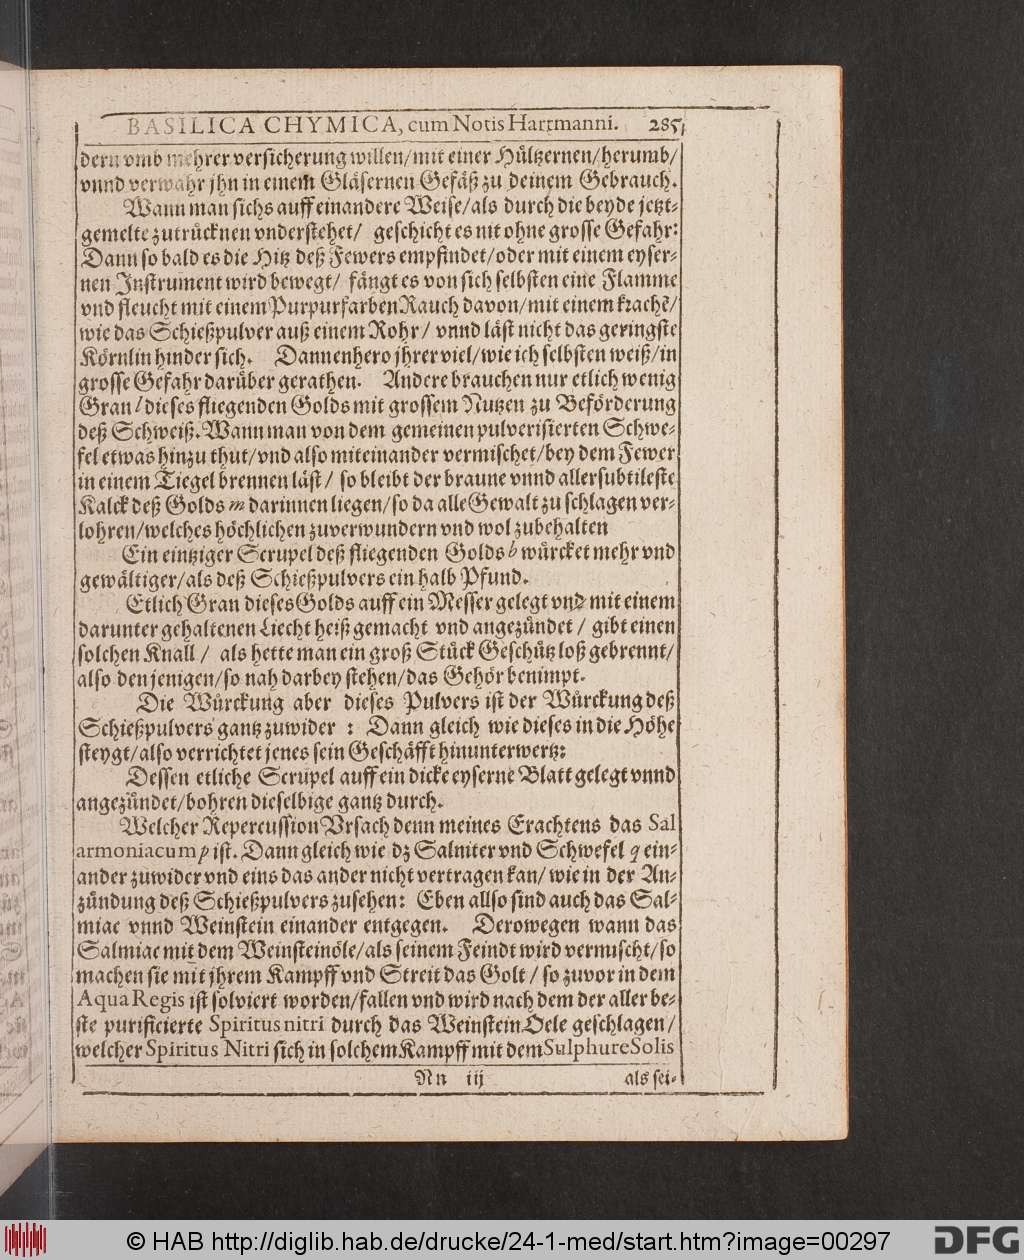 BASILICA CHYMICA, cum Notis Hartmanni. 285
dern vmb mehrer versicherung willen/mit einer Hültzernen/herumb/
vnnd verwahr jhn in einem Gläsernen Gefäß zu deinem Gebrauch.
Wann man sichs auff einandere Weise/als durch die beyde jetzt-
gemelte zutrücknen vnderstehet/ geschicht es nit ohne grosse Gefahr:
Dann so bald es die Hitz deß Fewers empfindet/oder mit einem eyser-
nen Instrument wird bewegt/ fängt es von sich selbsten eine Flamme
vnd fleucht mit einem Purpurfarben Rauch davon/mit einem krachẽ/
wie das Schießpulver auß einem Rohr/ vnnd läst nicht das geringste
Körnlin hinder sich. Dannenhero jhrer viel/wie ich selbsten weiß/in
grosse Gefahr darüber gerathen. Andere brauchen nur etlich wenig
Gran l dieses fliegenden Golds mit grossem Nutzen zu Beförderung
deß Schweiß. Wann man von dem gemeinen pulverisierten Schwe-
fel etwas hinzu thut/vnd also miteinander vermischet/bey dem Fewer
in einem Tiegel brennen läst/ so bleibt der braune vnnd allersubtileste
Kalck deß Golds m darinnen liegen/so da alle Gewalt zu schlagen ver-
lohren/welches höchlichen zuverwundern vnd wol zubehalten
Ein eintziger Scrupel deß fliegenden Golds b würcket mehr vnd
gewältiger/als deß Schießpulvers ein halb Pfund.
Etlich Gran dieses Golds auff ein Messer gelegt vnd mit einem
darunter gehaltenen Liecht heiß gemacht vnd angezündet/ gibt einen
solchen Knall/ als hette man ein groß Stück Geschütz loß gebrennt/
also denjenigen/so nah darbey stehen/das Gehör benimpt.
Die Würckung aber dieses Pulvers ist der Würckung deß
Schießpulvers gantz zuwider : Dann gleich wie dieses in die Höhe
steygt/also verrichtet jenes sein Geschäfft hinunterwertz:
Dessen etliche Scrupel auff ein dicke eyserne Blatt gelegt vnnd
angezündet/bohren dieselbige gantz durch.
Welcher Repercussion Vrsach denn meines Erachtens das Sal
armoniacum p ist. Dann gleich wie dz Salniter vnd Schwefel q ein-
ander zuwider vnd eins das ander nicht vertragen kan/ wie in der An-
zündung deß Schießpulvers zusehen: Eben allso sind auch das Sal-
miac vnnd Weinstein einander entgegen. Derowegen wann das
Salmiac mit dem Weinsteinöle/als seinem Feindt wird vermischt/so
machen sie mit jhrem Kampff vnd Streit das Golt/ so zuvor in dem
Aqua Regis ist solviert worden/fallen vnd wird nach dem der aller be-
ste purificierte Spiritus nitri durch das Weinstein Oele geschlagen/
welcher Spiritus Nitri sich in solchem Kampff mit dem Sulphure Solis
Nn iij als sei-
© HAB http://diglib.hab.de/drucke/24-1-med/start.htm?image=00297
DFG